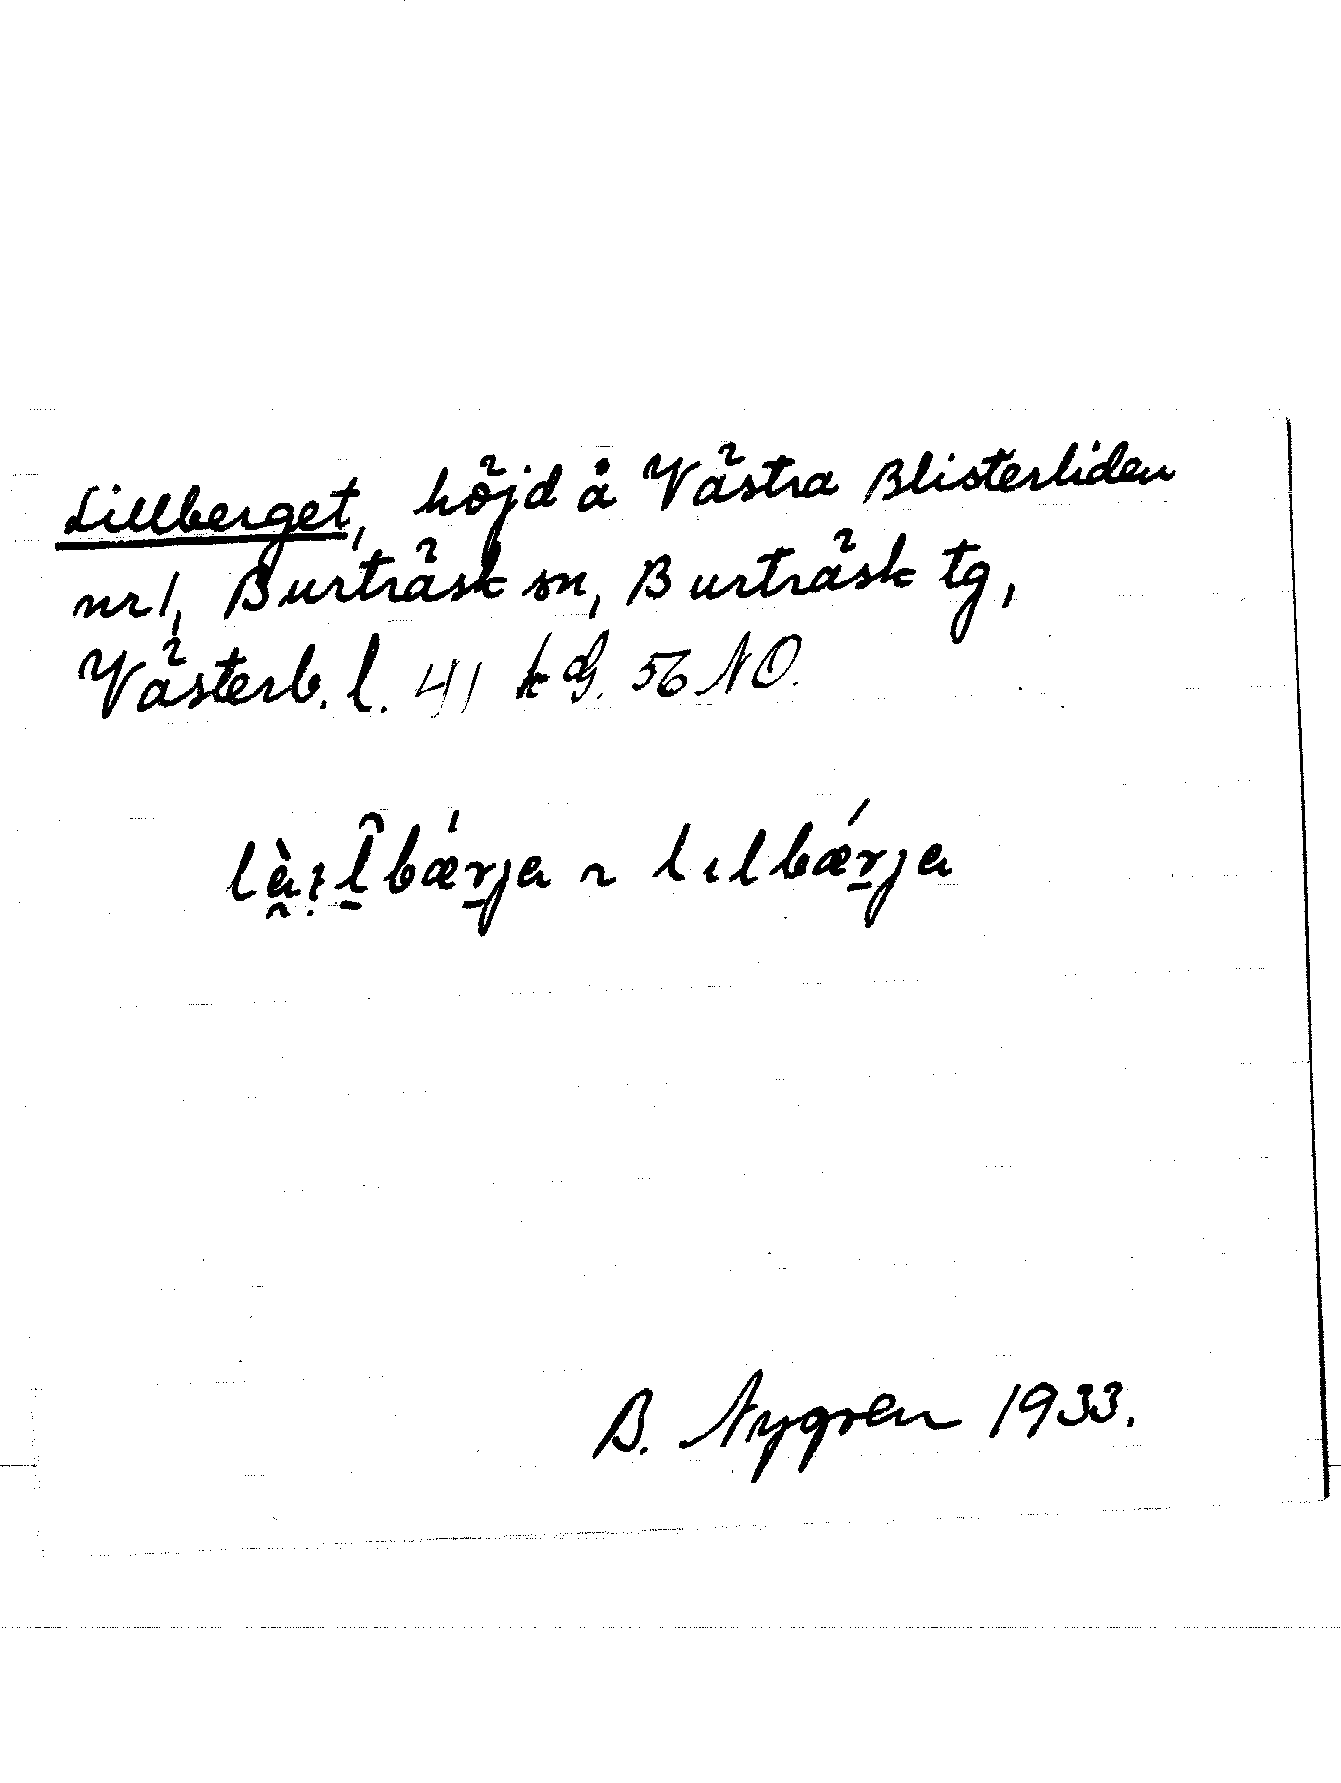 Lillberget, höjd å Västra Blisterliden
nr 1, Burträsk sn, Burträsk tg,
Västerb. l. 41 k G. 56 NO.
lılbǽr̲ja
B. Nygren 1933.